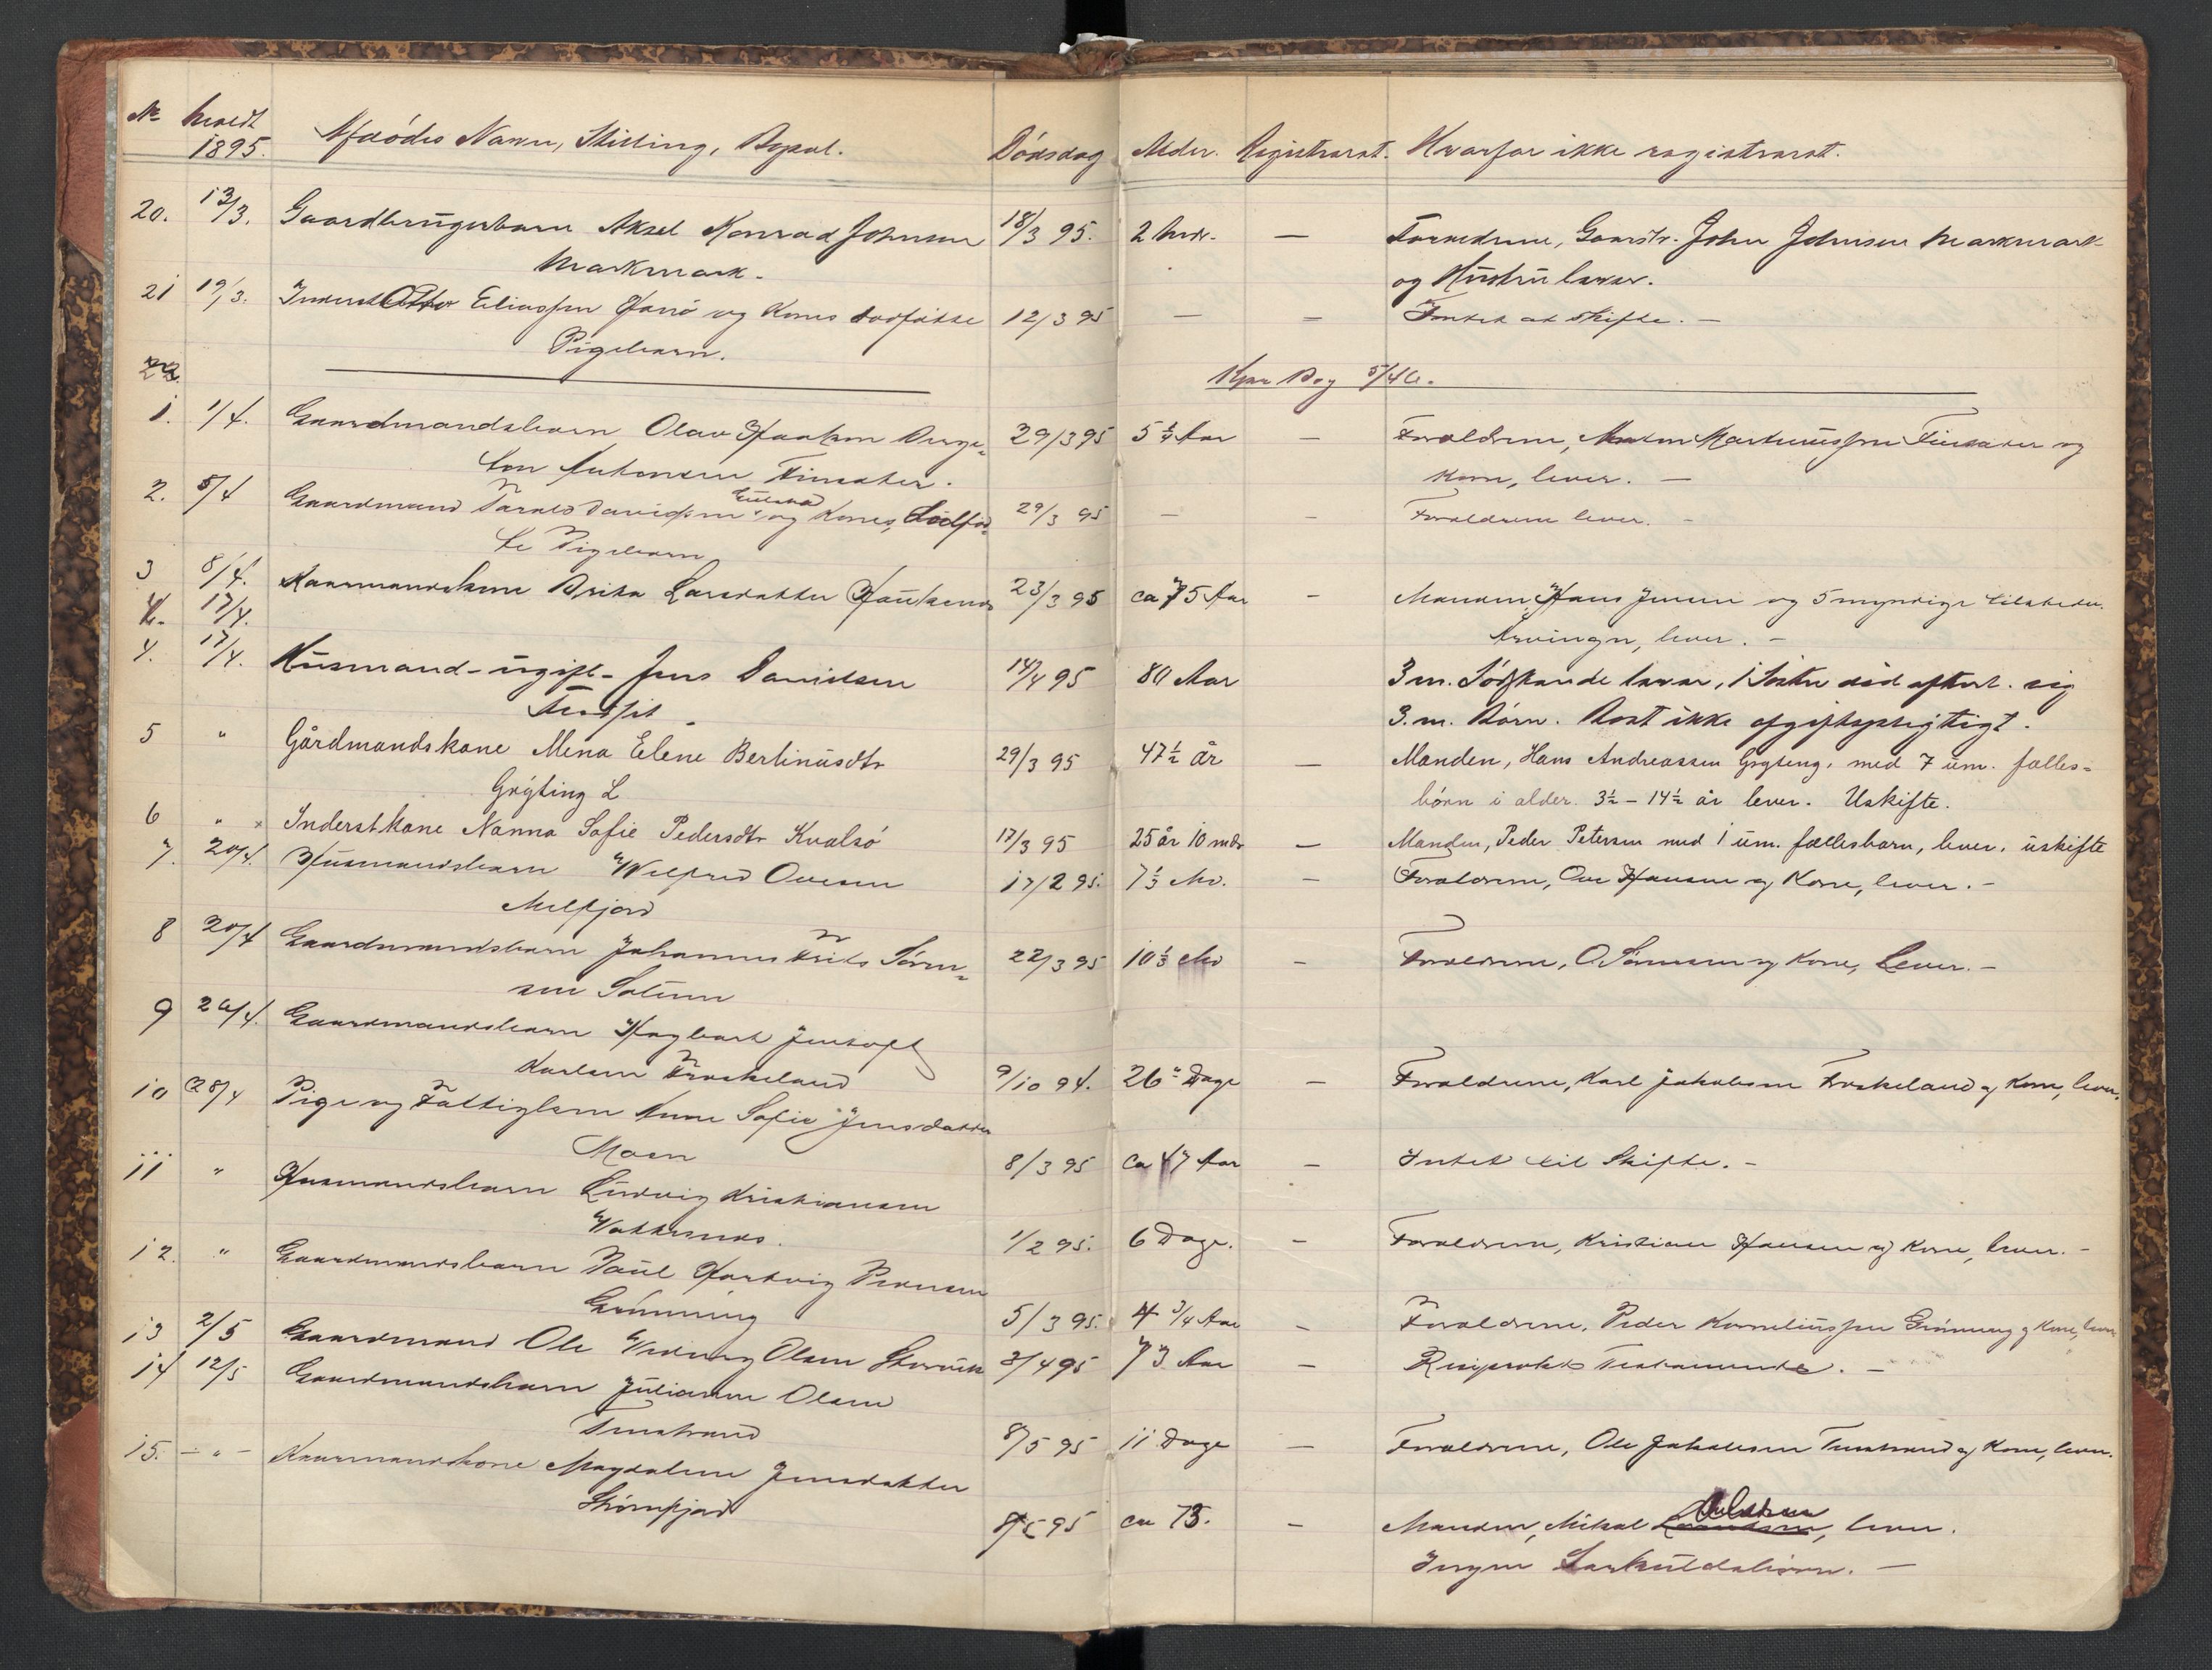 No meldt 1895. Afdödes Navn, Stilling, Bopæl. Dödsdag Alder. Registreret. Hvorfor ikke registreret.
20. 13/3. Gaardbrugerbarn Aksel Konrad Johnsen 18/3 95. 2 Mdr. — Forældrene, Gaardbr. John Johnsen Markmark
Markmark. og Hustru lever.
21 19/3. Inderst Otto Eliassen og Kones dødfødte 12/3 95 — — Intet at skifte. —
Pigebarn.
22.
5/4
1. 1/4. Gaardmandsbarn Olav Haakon 29/3 95 5 Aar — Forældrene, Anton Martinussen og
ton Antonsen Kone, lever. —
2. 5/4 Gaardmand Davidsen og Kones, Dødfød- 29/3 95 — — Forældrene lever. —
te Pigebarn
3 8/4. Kaarmandskone Brita Larsdatter 23/3 95 ca 75 Aar — Manden Hans Jensen og 5 myndige tilstede-
4. 17/4. Arvinger, lever. —
4. 17/4. Husmand - ugift - Jens Danielsen 14/4 95 80 Aar 3 m. Södskende lever, 1 Söster död efterl. sig
3. m. Börn. Boet ikke afgiftspligtigt.
5 " Gårdmandskone Mena Elene Bertinusdtr 29/3 95 47½ år — Manden, Hans Andreassen Gryting, med 7 um. fælles-
Grÿting L börn i alder 3½ - 14½ år lever. Uskifte.
6 " × Inderstkone Nanna Sofie Pedersdtr Kvalsö 17/3 95 25 år 10 mdr — Manden, Peder Petersen med 1 um. fællesbarn, lever. uskifte
7. 20/4. Husmandsbarn Wilfred Ovesen 17/2 95. 7⅓ Mo. — Forældrene, Ove Hansen og Kone, lever. —
Melfjord
8 20/4 Gaardmandsbarn Johannes Frits Sören- 22/3 95 10⅓ Mo — Forældrene, O Sörensen og Kone, Lever. —
sen
9 26/4. Gaardmandsbarn Hagbart Jentoft
Karlsen Troskeland 9/10 94. 26 Dage — Forældrene, Karl Jakobsen Troskeland og Kone, lever.
10 28/4 Pige og Fattiglem Anne Sofie Jensdatter
Moen 8/3 95 ca 47 Aar — Intet til Skifte. —
11 " Husmandsbarn Ludvig Kristiansen
1/2 95. 6 Dage. — Forældrene, Kristian Hansen og Kone, lever. —
12. " Gaardmandsbarn Paul Hartvig Pedersen
Grönning 5/3 95. 4 3/4 Aar — Forældrene, Peder Korneliussen Grönning og Kone, lever
13 2/5 Gaardmand Ole Olsen Storvik 3/4 95 73 Aar — Resiprokt Testamente. —
14 12/5 Gaardmandsbarn Julianne Olsen
8/5 95 11 Dage — Forældrene, Ole Jakobsen og Kone, lever.
15. - " - Kaarmandskone Magdalene Jensdatter
Strömfjord 8/5 95 ca 73. — Manden, Mikal, lever.
Ingen Særkuldsbörn. —